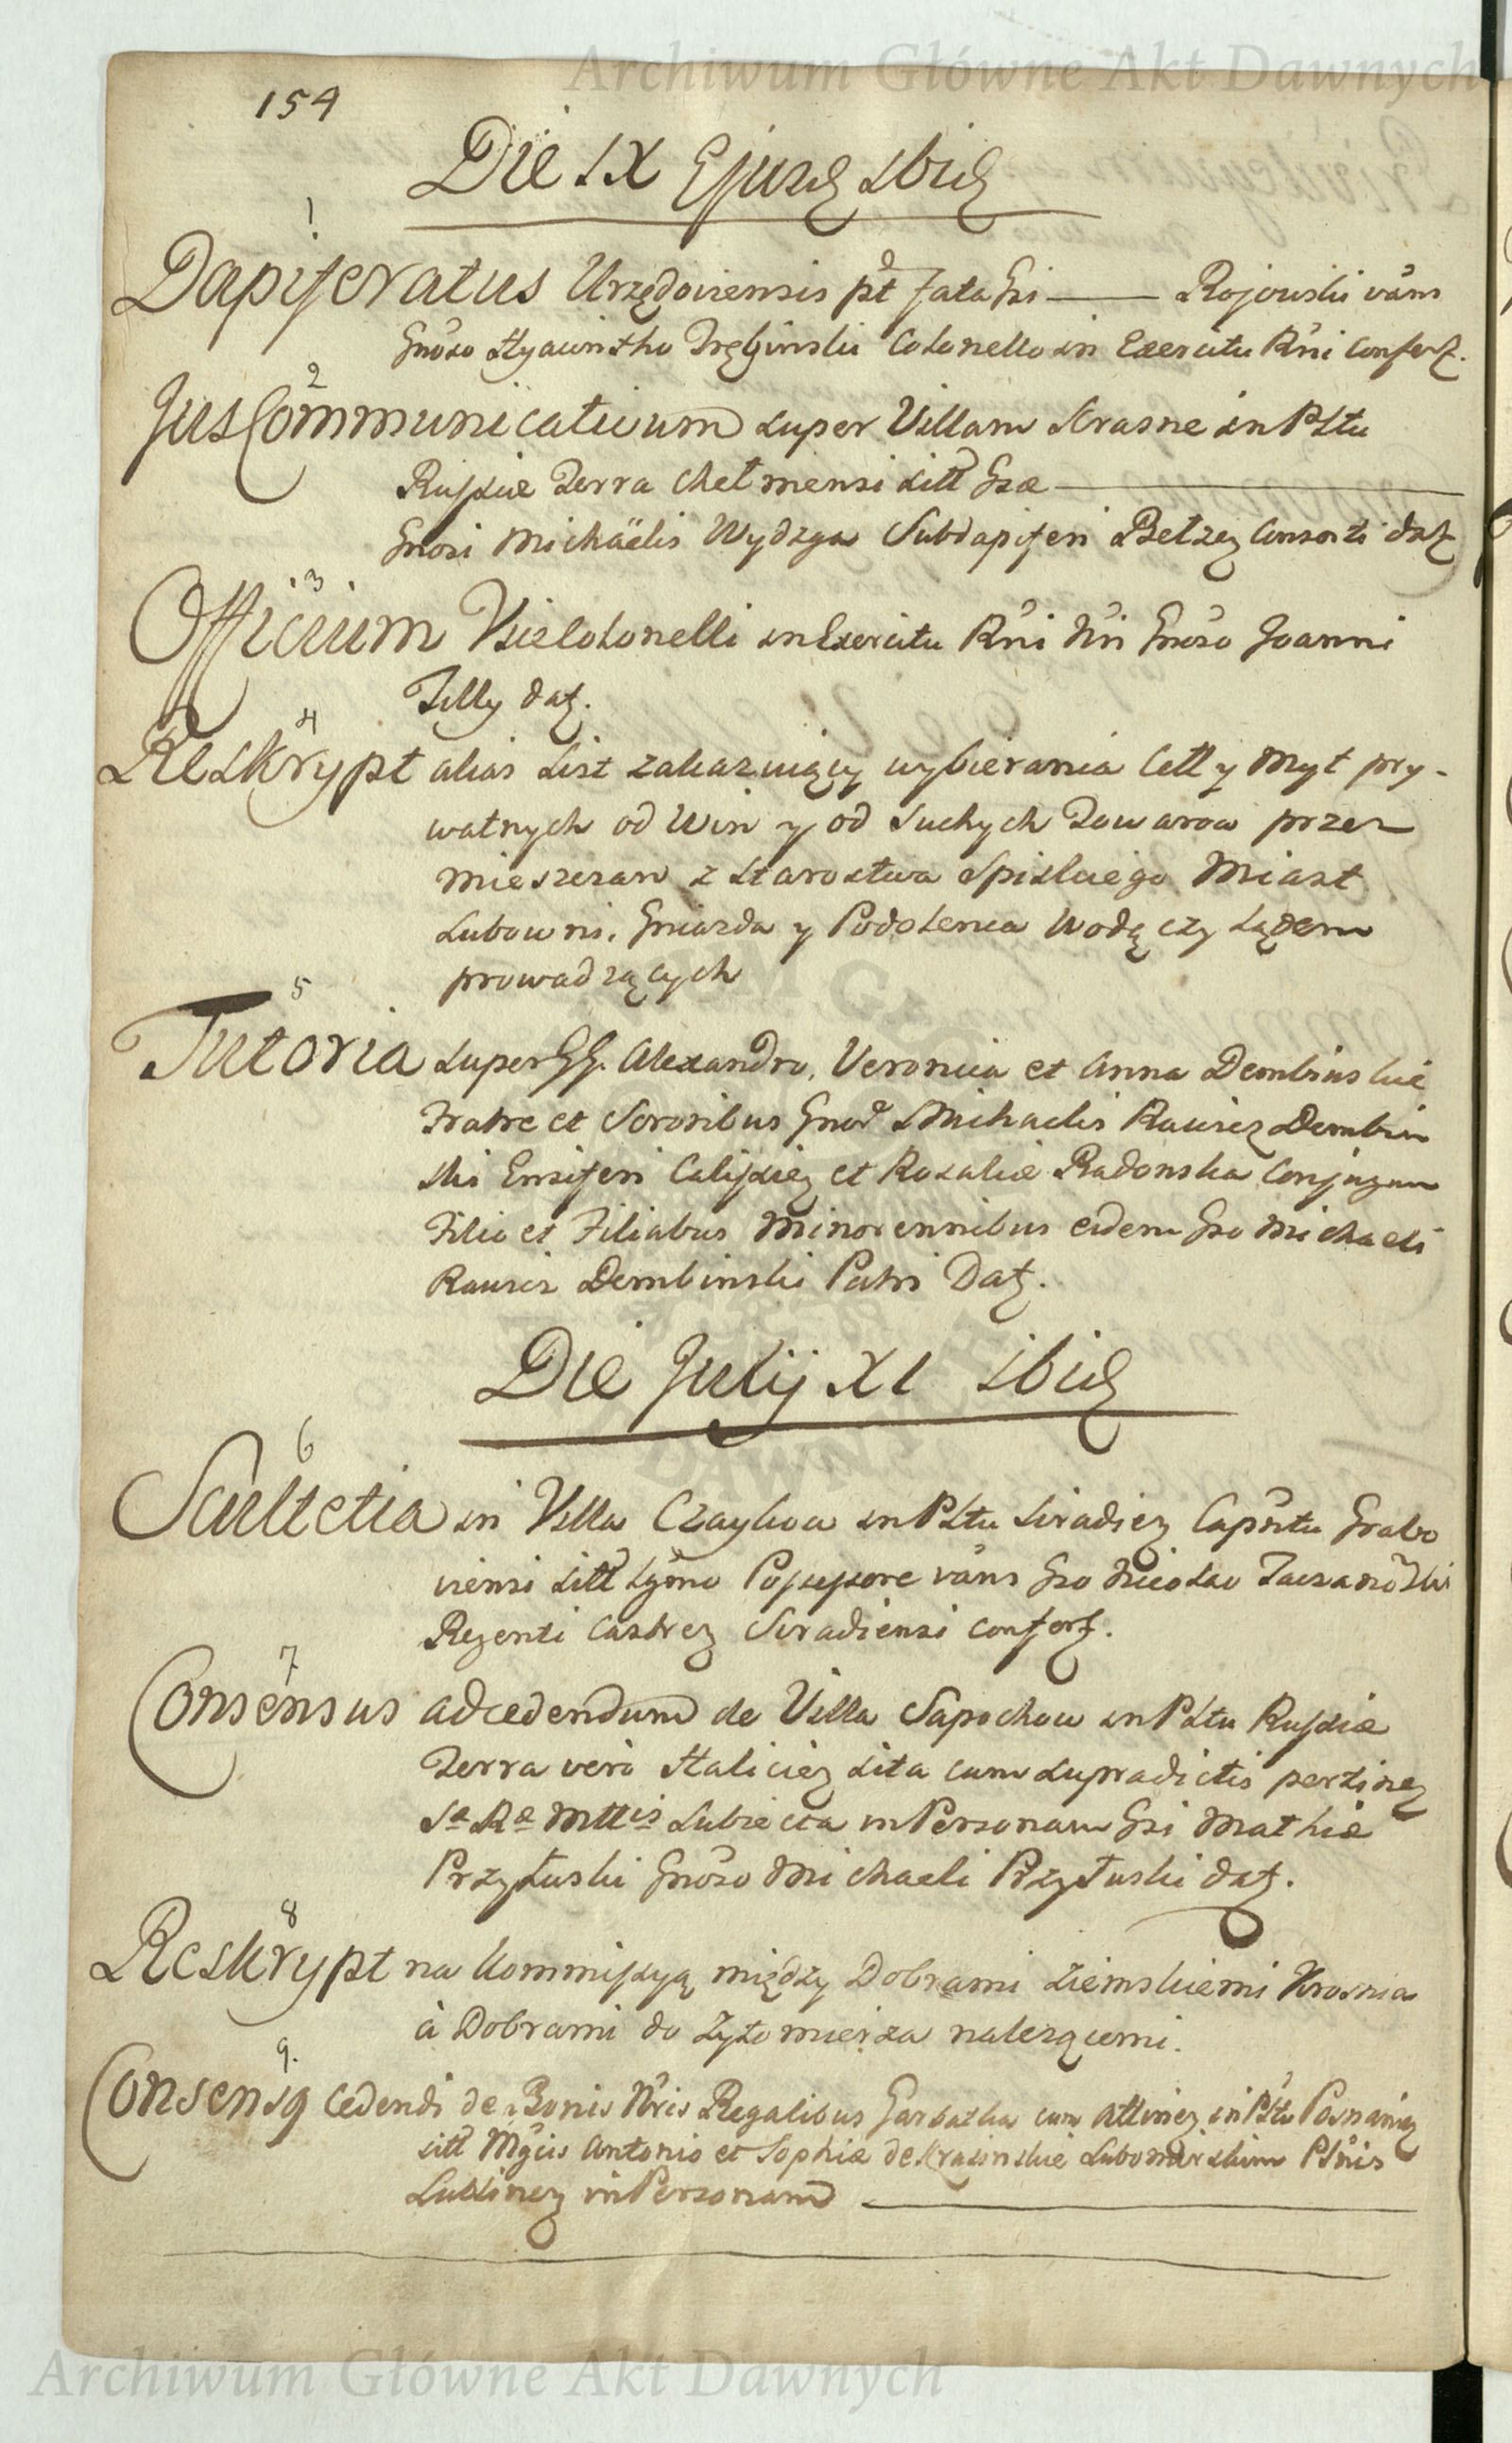 Archiwum Główne Akt Dawnych
154
Die IX Ejusd ibid
1
Dapiferatus Urzędoviensis pt fata Gsi — Rojowski vans
Gnoso Hyacintho Trębinski Colonello in Exercitu Rni Confert.
2
Jus Communicativum super Villam Krasne in Pltu
Russiæ Terra Chełmensi sitt Gsæ —
Gnosi Michäelis Wydzga Subdapiferi Bełzen Consorti dat
3
Officium Vicecolonelli in Exercitu Rni Nri Gnoso Joanni
Tilly dat.
4
Reskrypt alias List zakazuiący wybierania Cell y Myt pry-
watnych od Win y od suchych Towarow przez
Mieszczan z Starostwa Spiskiego Miast
Lubowni, Gniazda y Podolenca Wodą czy Lądem
prowadzących
5
Tutoria super GG. Alexandro, Veronica et Anna Dembinskie
Fratre et Sororibus Gnod Michaelis Rawicz Dembin
ski Ensiferi Calissien et Rosaliæ Radonska Conjugum
Filio et Filiabus Minorennibus eidem Gso Michaeli
Rawicz Dembinski Patri Dat.
Die Julij XI ibid
6
Scultetia in Villa Czaykow in Pltu Siradien Capntu Grabo
viensi sitt Possessore vans Gso Nicolao
Regenti Castren Siradiensi Confert.
7
Consensus ad cedendum de Villa Sapochow in Pltu Russiæ
Terra vero Halicien sita cum supradictis pertinen
Sæ Ræ Mttis Subiecta in Personam Gsi Mathiæ
Przyłuski Gnoso Michaeli Przyłuski dat.
8
Reskrypt na Kommissyą między Dobrami Ziemskiemi Krosnia
à Dobrami do Zytomierza nalezącemi.
9.
Consensq Cedendi de Bonis Nris Regalibus Garbatka cum Attinen in Pltu Posnanien
sitt Mgcis Antonio et Sophiæ de Krasinskie Lubomirskim Plnis
Lublinen in Personam —
Archiwum Główne Akt Dawnych